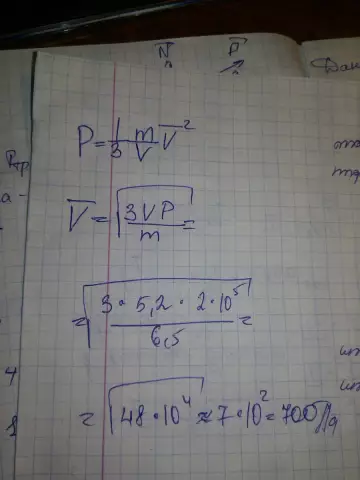 N P
Дан
P = 1/3 m/V V̅²
V̅ = √(3VP/m) =
= √(3 · 5,2 · 2·10⁵ / 6,5) =
= √(48·10⁴) ≈ 7·10² = 700 Па
а -
4
8